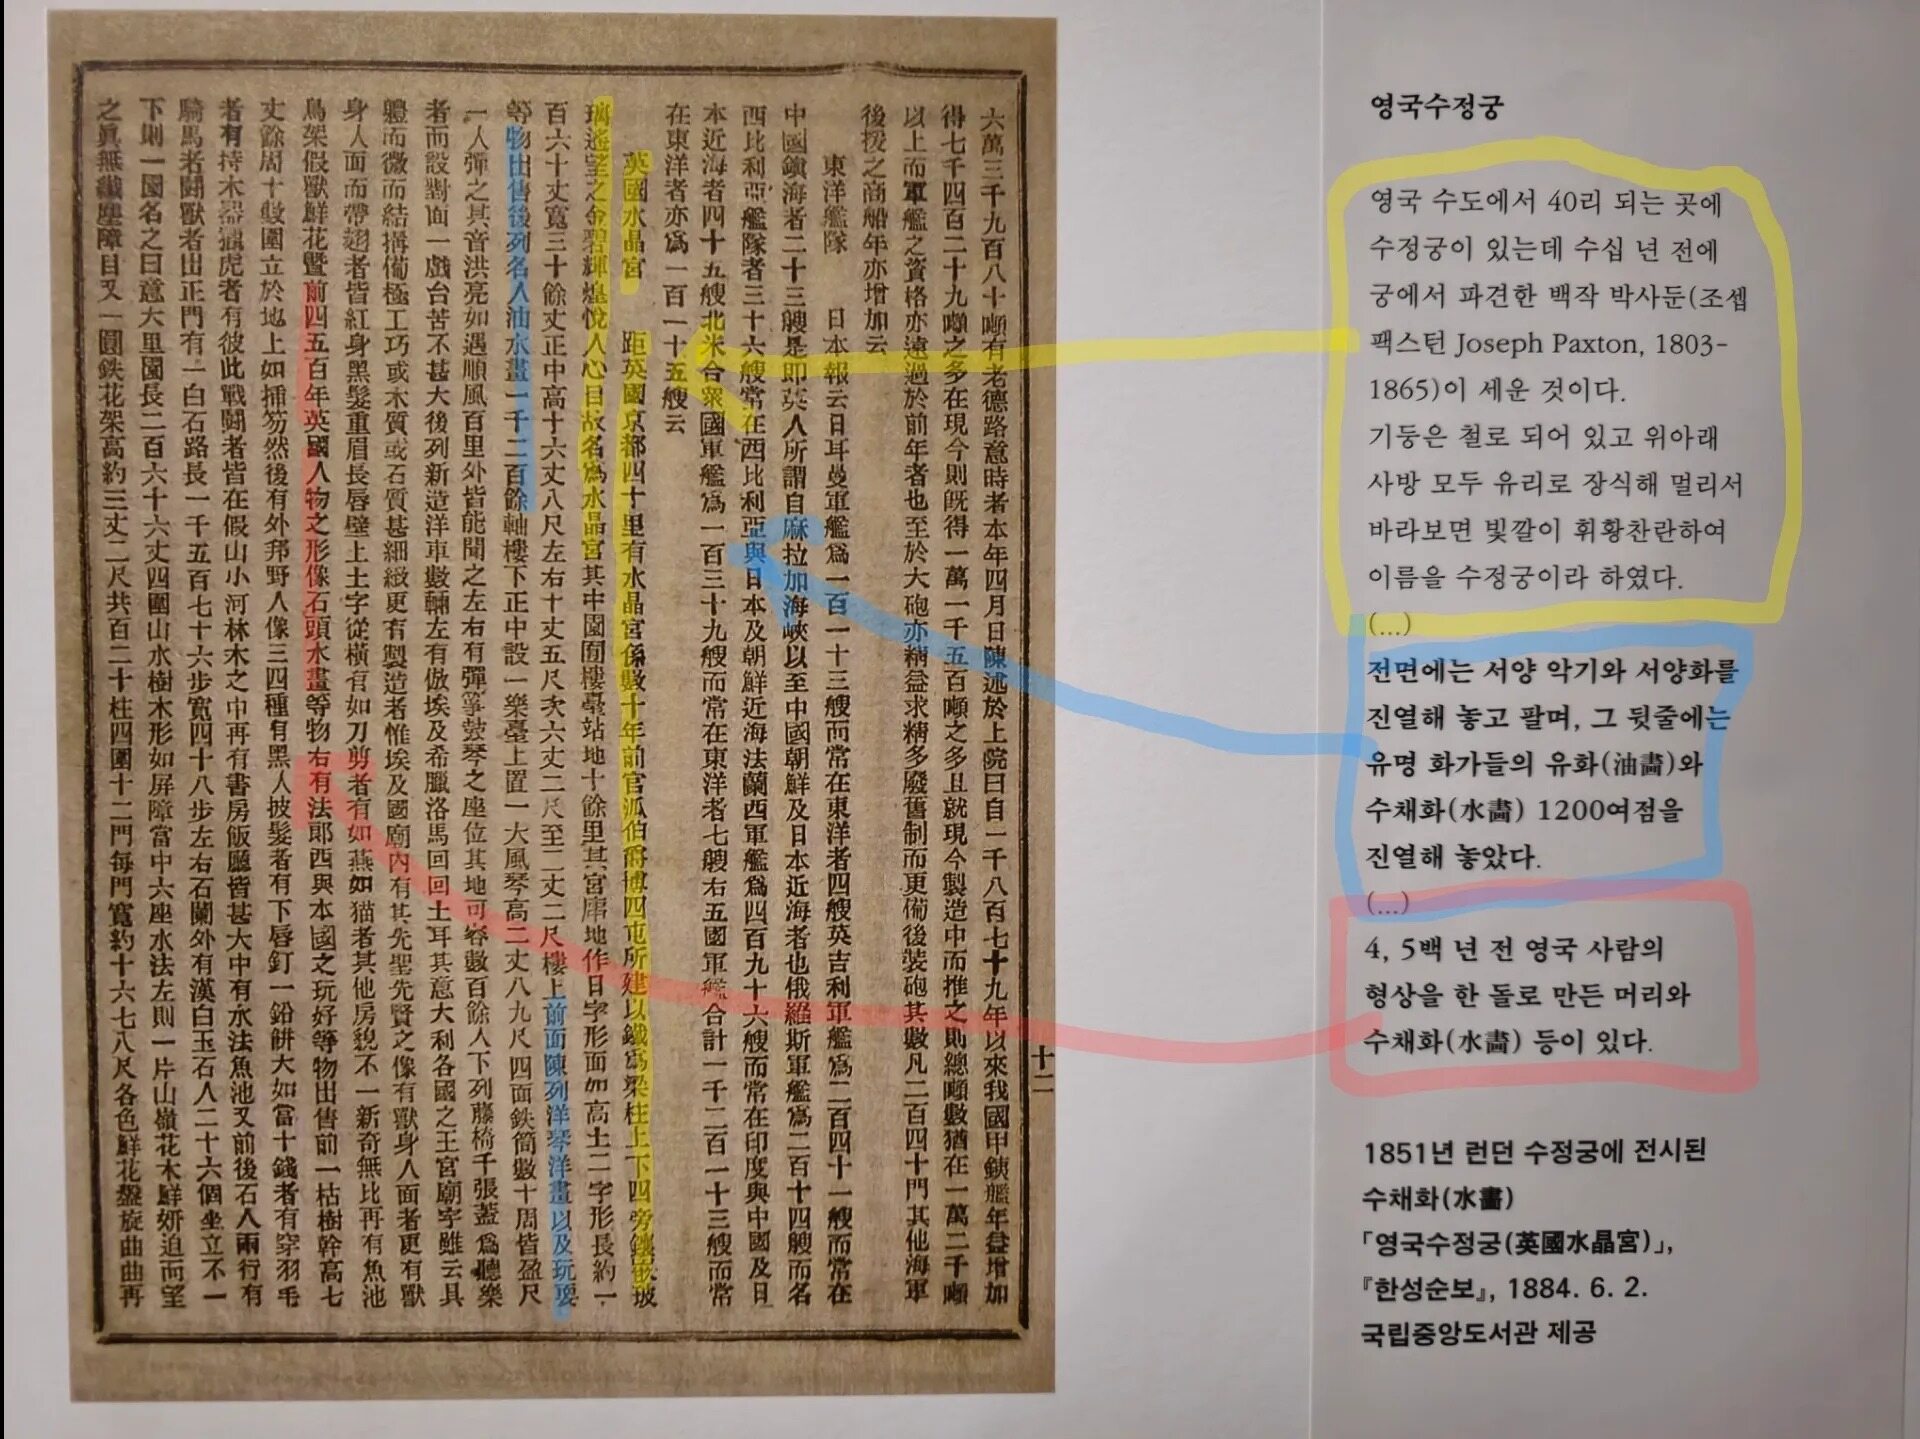 六萬三千九百八十噸有老德路意時者本年四月日陳述於上院曰自一千八百七十九年以來我國甲鐵艦年益增加
得七千四百二十九噸之多在現今則旣得一萬一千五百噸之多且就現今製造中而推之則總噸數猶在一萬二千噸
以上而軍艦之資格亦遠過於前年者也至於大砲亦精益求精多廢舊制而更備後裝砲其數凡二百四十門其他海軍
後援之商船年亦增加云
東洋艦隊 日本報云日耳曼軍艦爲一百一十三艘而常在東洋者四艘英吉利軍艦爲二百四十一艘而常在
中國鎭海者二十三艘是即英人所謂自麻拉加海峽以至中國朝鮮及日本近海者也俄羅斯軍艦爲二百十四艘而名
西比利亞艦隊者三十六艘常在西比利亞與日本及朝鮮近海法蘭西軍艦爲四百九十六艘而常在印度與中國及日
本近海者四十五艘北米合衆國軍艦爲一百三十九艘而常在東洋者七艘右五國軍艦合計一千二百一十三艘而常
在東洋者亦爲一百一十五艘云
英國水晶宮 距英國京都四十里有水晶宮係數十年前官派伯爵博四屯所建以鐵爲梁柱上下四旁鑲嵌玻
璃遙望之金碧輝煌悅人心目故名爲水晶宮其中園囿樓臺站地十餘里其宮庫地作日字形面如高土二字形長約一
百六十丈寬三十餘丈正中高十六丈八尺左右十丈五尺次六丈二尺至二丈二尺樓上前面陳列洋琴洋畫以及玩耍
等物出售後列名人油水畫一千二百餘軸樓下正中設一樂臺上置一大風琴高二丈八九尺四面鉄筒數十周皆盈尺
一人彈之其音洪亮如遇順風百里外皆能聞之左右有彈箏鼓琴之座位其地可容數百餘人下列藤椅千張蓋爲聽樂
者而設對面一戲台苦不甚大後列新造洋車數輛左有倣埃及希臘洛馬回回土耳其意大利各國之王宮廟宇雖云具
體而微而結搆備極工巧或木質或石質甚細緻更有製造者惟埃及國廟內有其先聖先賢之像有獸身人面者更有獸
身人面而帶翅者皆紅身黑髮重眉長唇壁上土字從橫有如刀剪者有如燕如猫者其他房貌不一新奇無比再有魚池
鳥架假獸鮮花曁前四五百年英國人物之形像石頭水畫等物右有法郎西與本國之玩好等物出售前一枯樹幹高七
丈餘周十數圍立於地上如揷笏然後有外邦野人像三四種有黑人披髮者有下唇釘一鉛餅大如當十錢者有穿羽毛
者有持木器獵虎者有彼此戰鬪者皆在假山小河林木之中再有書房飯廳皆甚大中有水法魚池又前後石人兩行有
騎馬者鬪獸者出正門有一白石路長一千五百七十六步寬四十八步左右石闌外有漢白玉石人二十六個坐立不一
下則一園名之曰意大里園長二百六十六丈四圍山水樹木形如屏障當中六座水法左則一片山嶺花木鮮妍迫而望
之眞無纖塵障目又一圓鉄花架高約三丈二尺共百二十柱四圍十二門每門寬約十六七八尺各色鮮花盤旋曲曲再
十二
영국수정궁
영국 수도에서 40리 되는 곳에
수정궁이 있는데 수십 년 전에
궁에서 파견한 백작 박사둔(조셉
팩스턴 Joseph Paxton, 1803-
1865)이 세운 것이다.
기둥은 철로 되어 있고 위아래
사방 모두 유리로 장식해 멀리서
바라보면 빛깔이 휘황찬란하여
이름을 수정궁이라 하였다.
(...)
전면에는 서양 악기와 서양화를
진열해 놓고 팔며, 그 뒷줄에는
유명 화가들의 유화(油畵)와
수채화(水畵) 1200여점을
진열해 놓았다.
(...)
4, 5백 년 전 영국 사람의
형상을 한 돌로 만든 머리와
수채화(水畵) 등이 있다.
1851년 런던 수정궁에 전시된
수채화(水畵)
「영국수정궁(英國水晶宮)」,
『한성순보』, 1884. 6. 2.
국립중앙도서관 제공